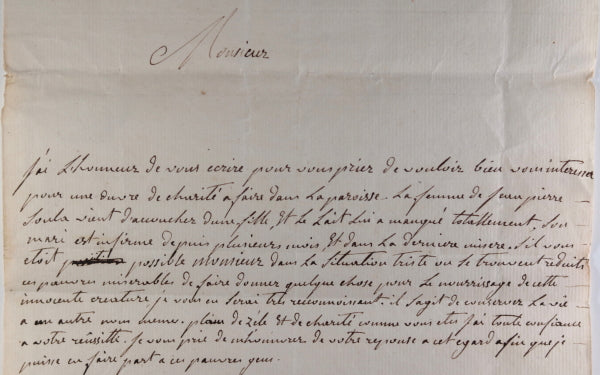 Monsieur
J'ai L'honneur de vous ecrire pour vous prier de vouloir bien vous interesser
pour une œuvre de charité a faire dans La paroisse. La femme de jean pierre
Soula vient d'acoucher d'une fille, Et Le Lait Lui a manqué totallement, Son
mari est infirme depuis plusieurs mois, Et dans La derniere misere. S'il vous
etoit possible Monsieur dans La Situation triste ou Se trouvent reduits
ces pauvres miserables de faire donner quelque chose pour Le nourrissage de cette
innocente creature je vous en Serai tres reconnoissant. il S'agit de conserver La vie
a un autre nous meme. plein de Zéle Et de charité comme vous etes J'ai toute confiance
a votre réüssitte. Je vous prie de m'honnurer de votre reponse a cet egard afin que je
puisse en faire part a ces pauvres gens.